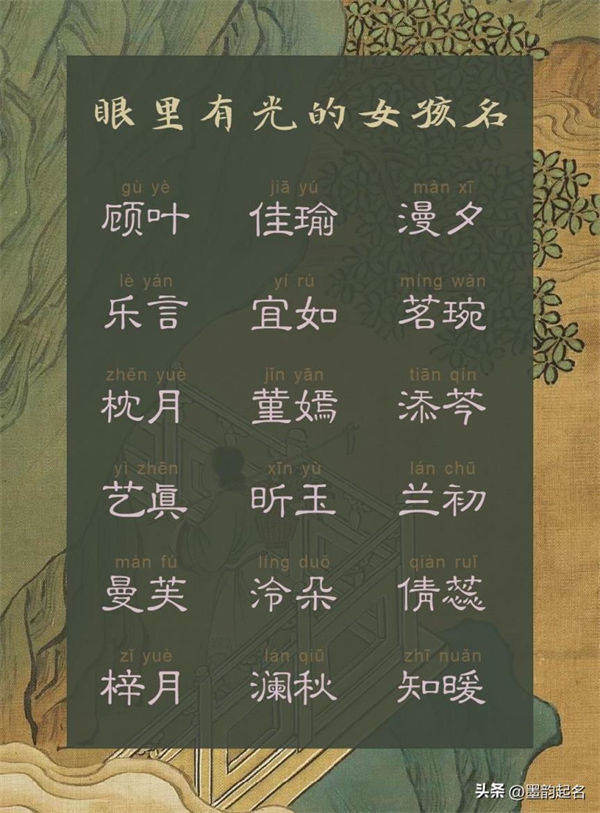 眼里有光的女孩名
gù yè jiā yú màn xī
顾叶 佳瑜 漫夕
lè yán yí rú míng wǎn
乐言 宜如 茗琬
zhěn yuè jǐn yān tiān qín
枕月 堇嫣 添芩
yì zhēn xīn yù lán chū
艺真 昕玉 兰初
màn fú líng duǒ qiàn ruǐ
曼芙 泠朵 倩蕊
zǐ yuè lán qiū zhī nuǎn
梓月 澜秋 知暖
头条 @墨韵起名